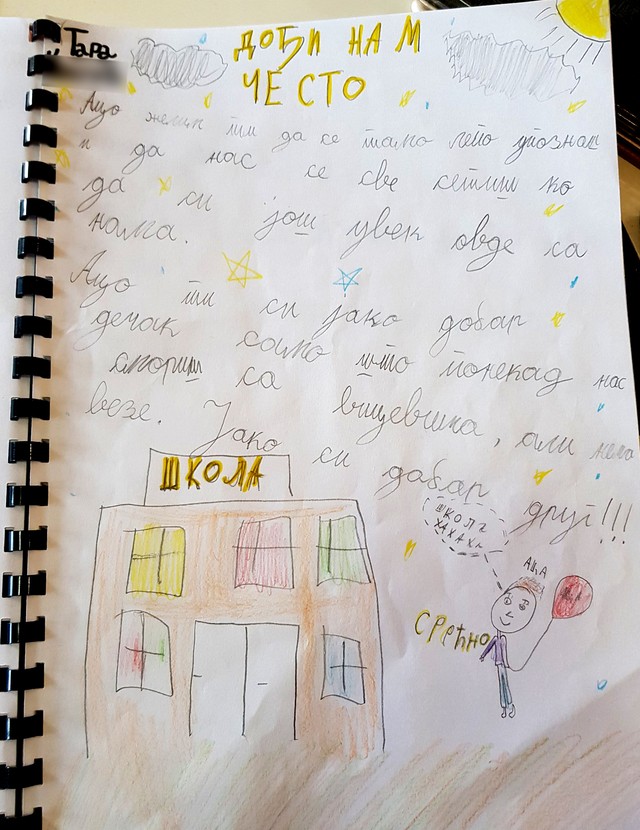 Тара
ДОЂИ НАМ
ЧЕСТО
Ацо желим ти да се тамо лепо упознаш
и да нас се све сетиш ко
да си још увек овде са
нама.
Ацо ти си јако добар
дечак само што понекад нас
смориш са вицевима, али нема
везе. Јако си добар друг!!!
ШКОЛА
ШКОЛА
ХАХАХА
АЦА
СРЕЋНО